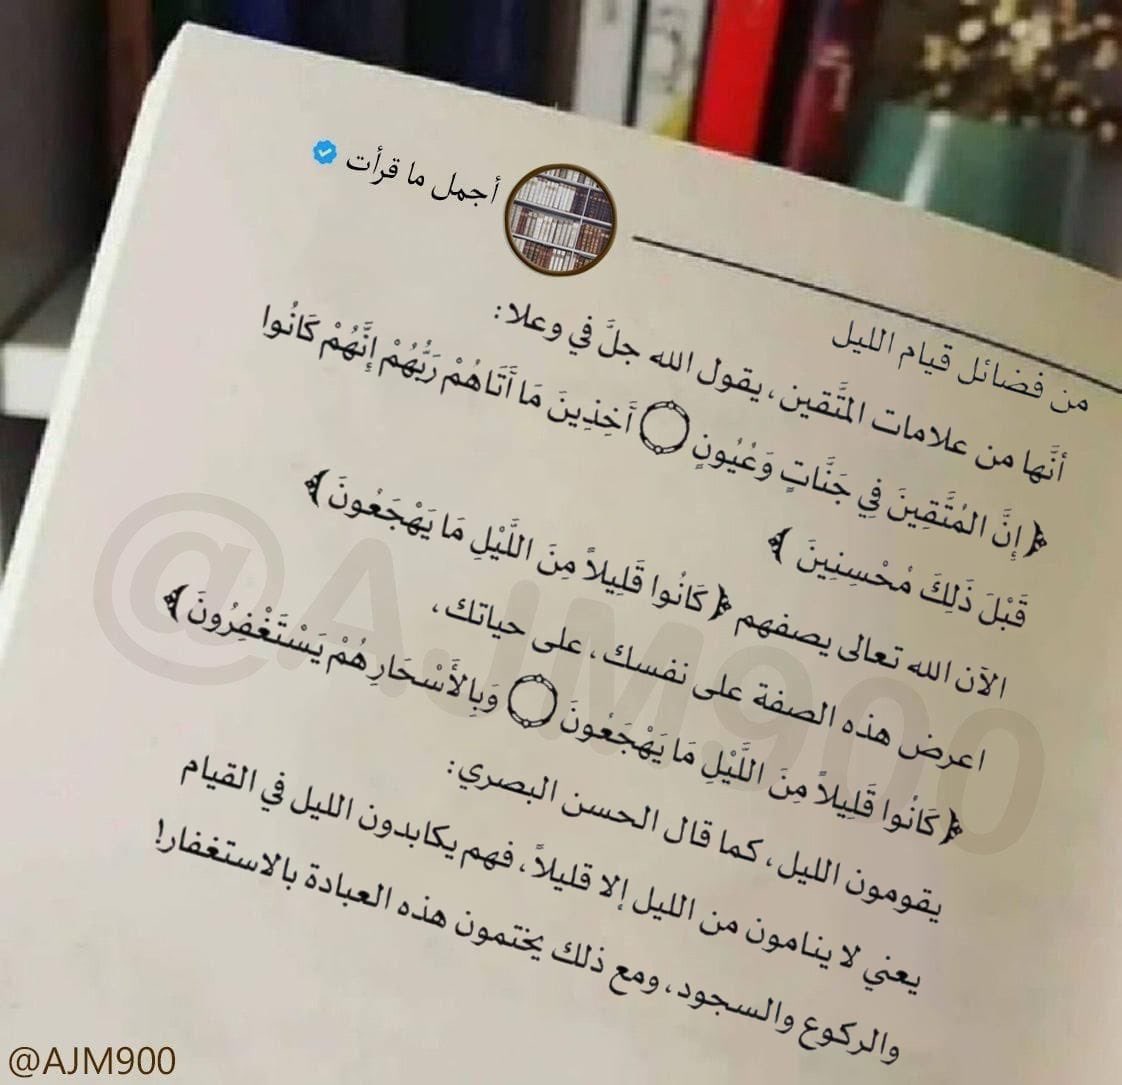 أجمل ما قرأت
من فضائل قيام الليل
أنَّها من علامات المتَّقين، يقول الله جلَّ في وعلا:
﴿إِنَّ المُتَّقِينَ فِي جَنَّاتٍ وَعُيُونٍ ۝ آَخِذِينَ مَا آَتَاهُمْ رَبُّهُمْ إِنَّهُمْ كَانُوا
قَبْلَ ذَلِكَ مُحْسِنِينَ ﴾
الآن الله تعالى يصفهم ﴿كَانُوا قَلِيلاً مِنَ اللَّيْلِ مَا يَهْجَعُونَ﴾
اعرض هذه الصفة على نفسك، على حياتك،
﴿كَانُوا قَلِيلاً مِنَ اللَّيْلِ مَا يَهْجَعُونَ ۝ وَبِالأَسْحَارِ هُمْ يَسْتَغْفِرُونَ﴾
يقومون الليل، كما قال الحسن البصري:
يعني لا ينامون من الليل إلا قليلاً، فهم يكابدون الليل في القيام
والركوع والسجود، ومع ذلك يختمون هذه العبادة بالاستغفار!
@AJM900
@AJM900